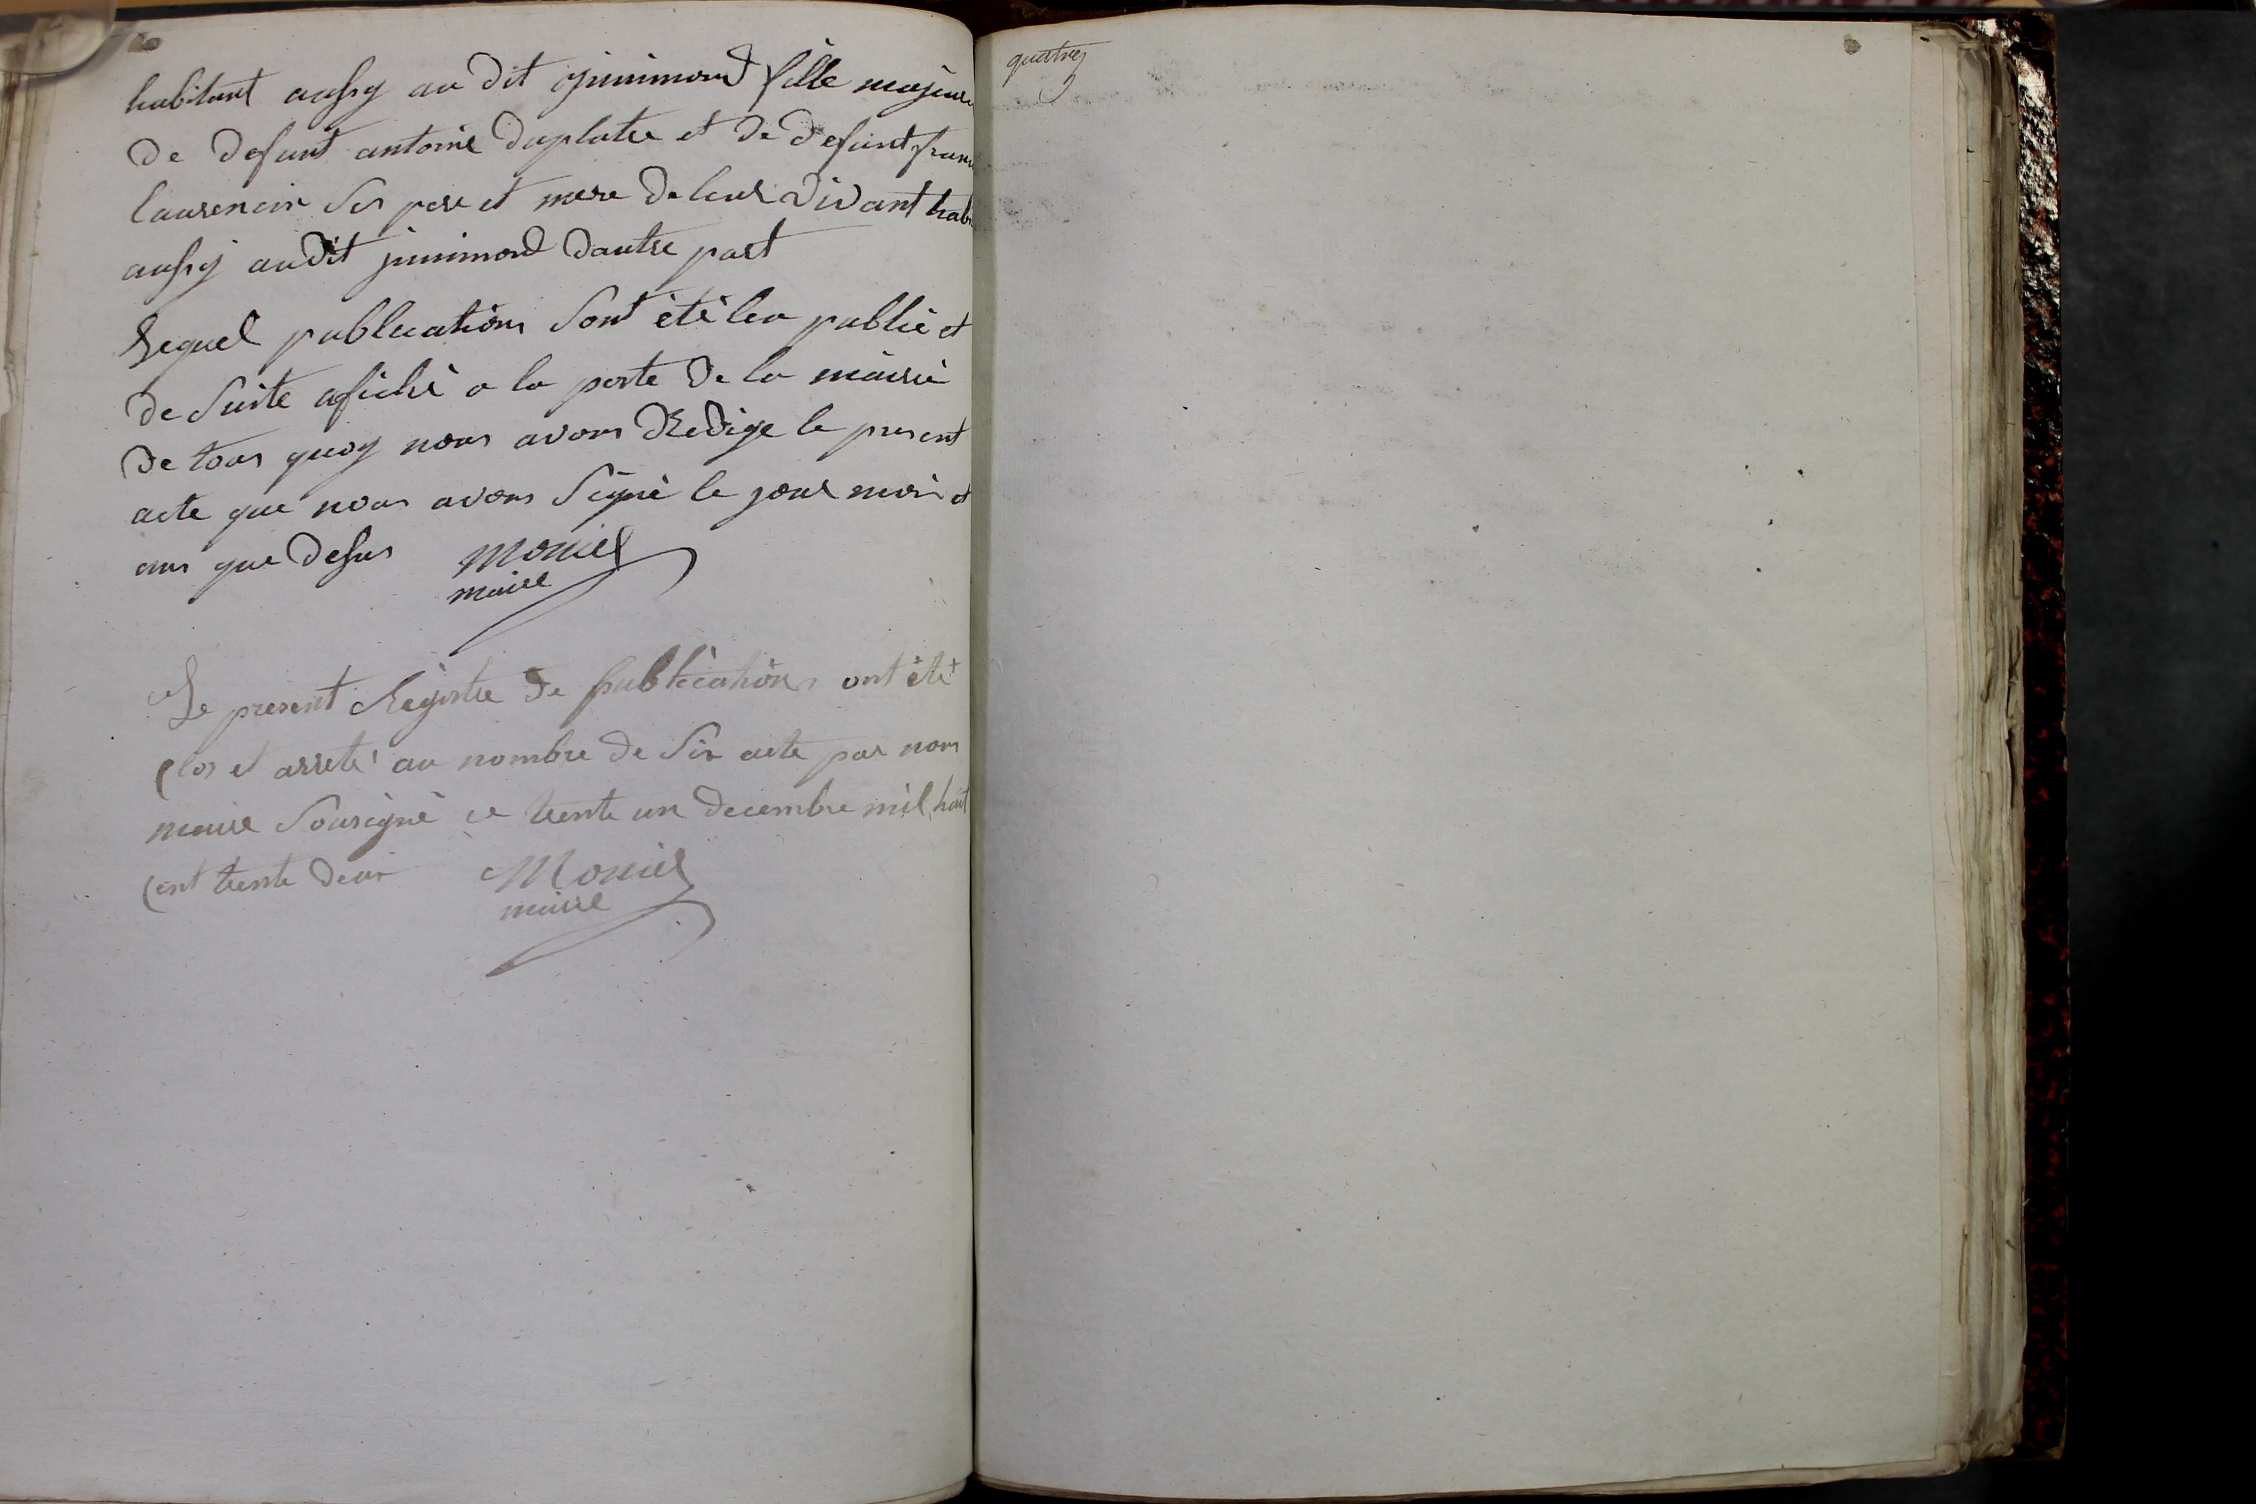 habitant aussy au dit jinimond fille majeure
de defunt antoine duplatre et de defunt fran
laurencin ses pere et mere de leur vivant hab
aussy audit jinimond dautre part
Lequel publication sont èté leu publié et
de suite afiché a la porte de la mairie
de tous quoy nous avons Redige le present
acte que nous avons signé le jour mois et
ans que desus Monier
maire
Le present Registre de publications ont été
Clos et arreté au nombre de six acte par nous
maire sousigné ce trente un decembre mil huit
Cent trente deux Monier
maire
quatre